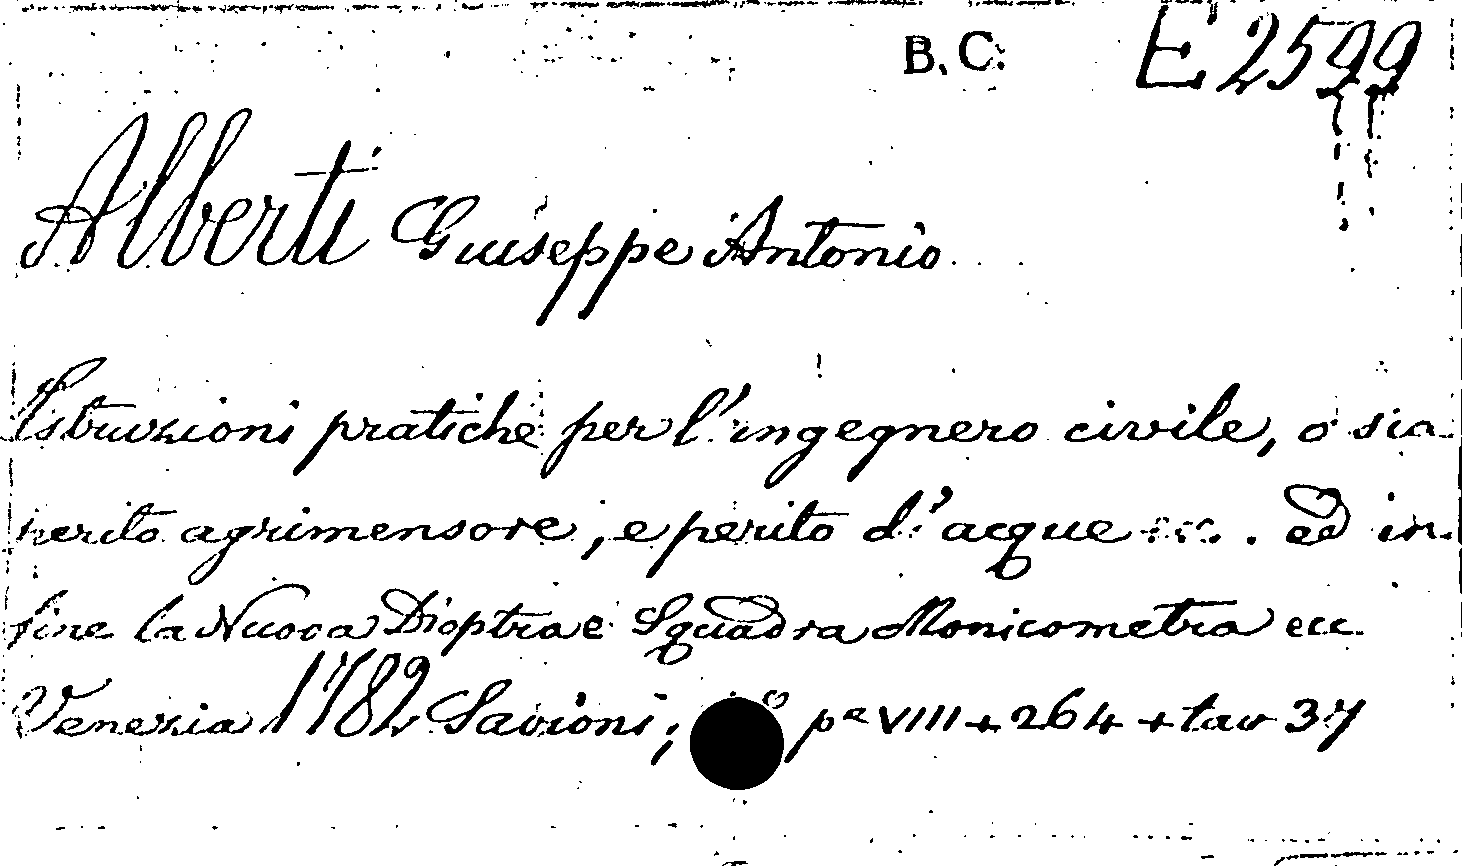 B.C. E 2599
Alberti Giuseppe Antonio
Istruzioni pratiche per l'ingegnero civile, o sia
perito agrimensore, e perito d'acque ecc. ed in
fine la Nuova Dioptra e Squadra Monicometra ecc
Venezia 1782 Savioni; pe VIII + 264 + tav 37